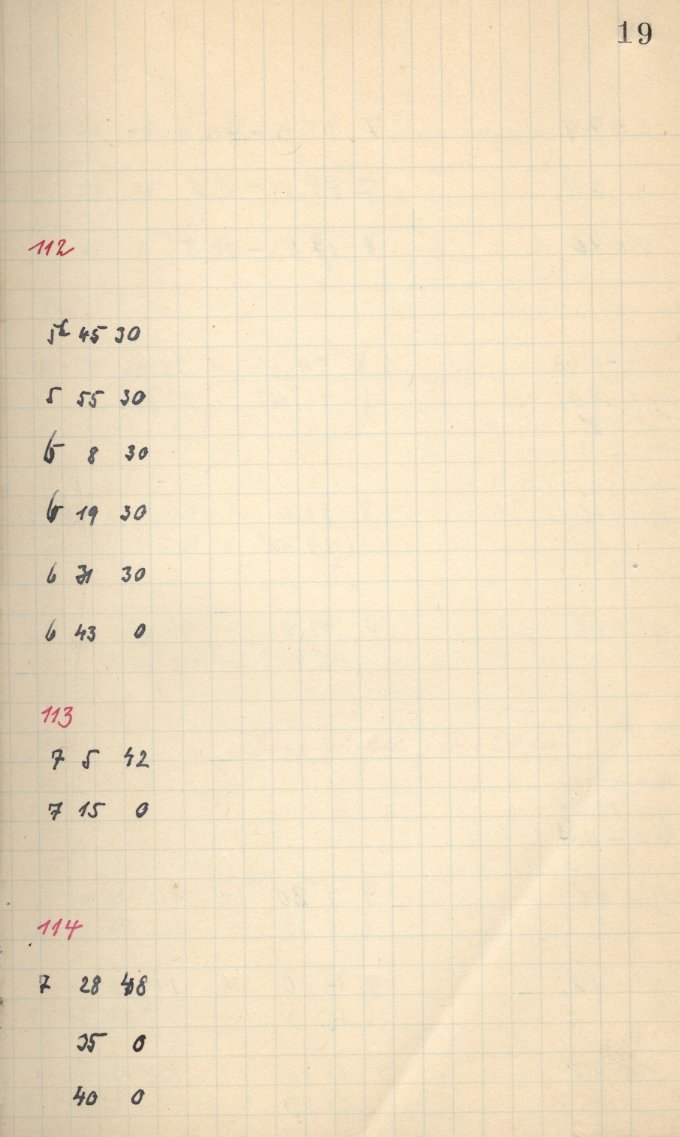 19
112
5h 45 30
5 55 30
6 8 30
6 19 30
6 31 30
6 43 0
113
7 5 42
7 15 0
114
7 28 48
35 0
40 0